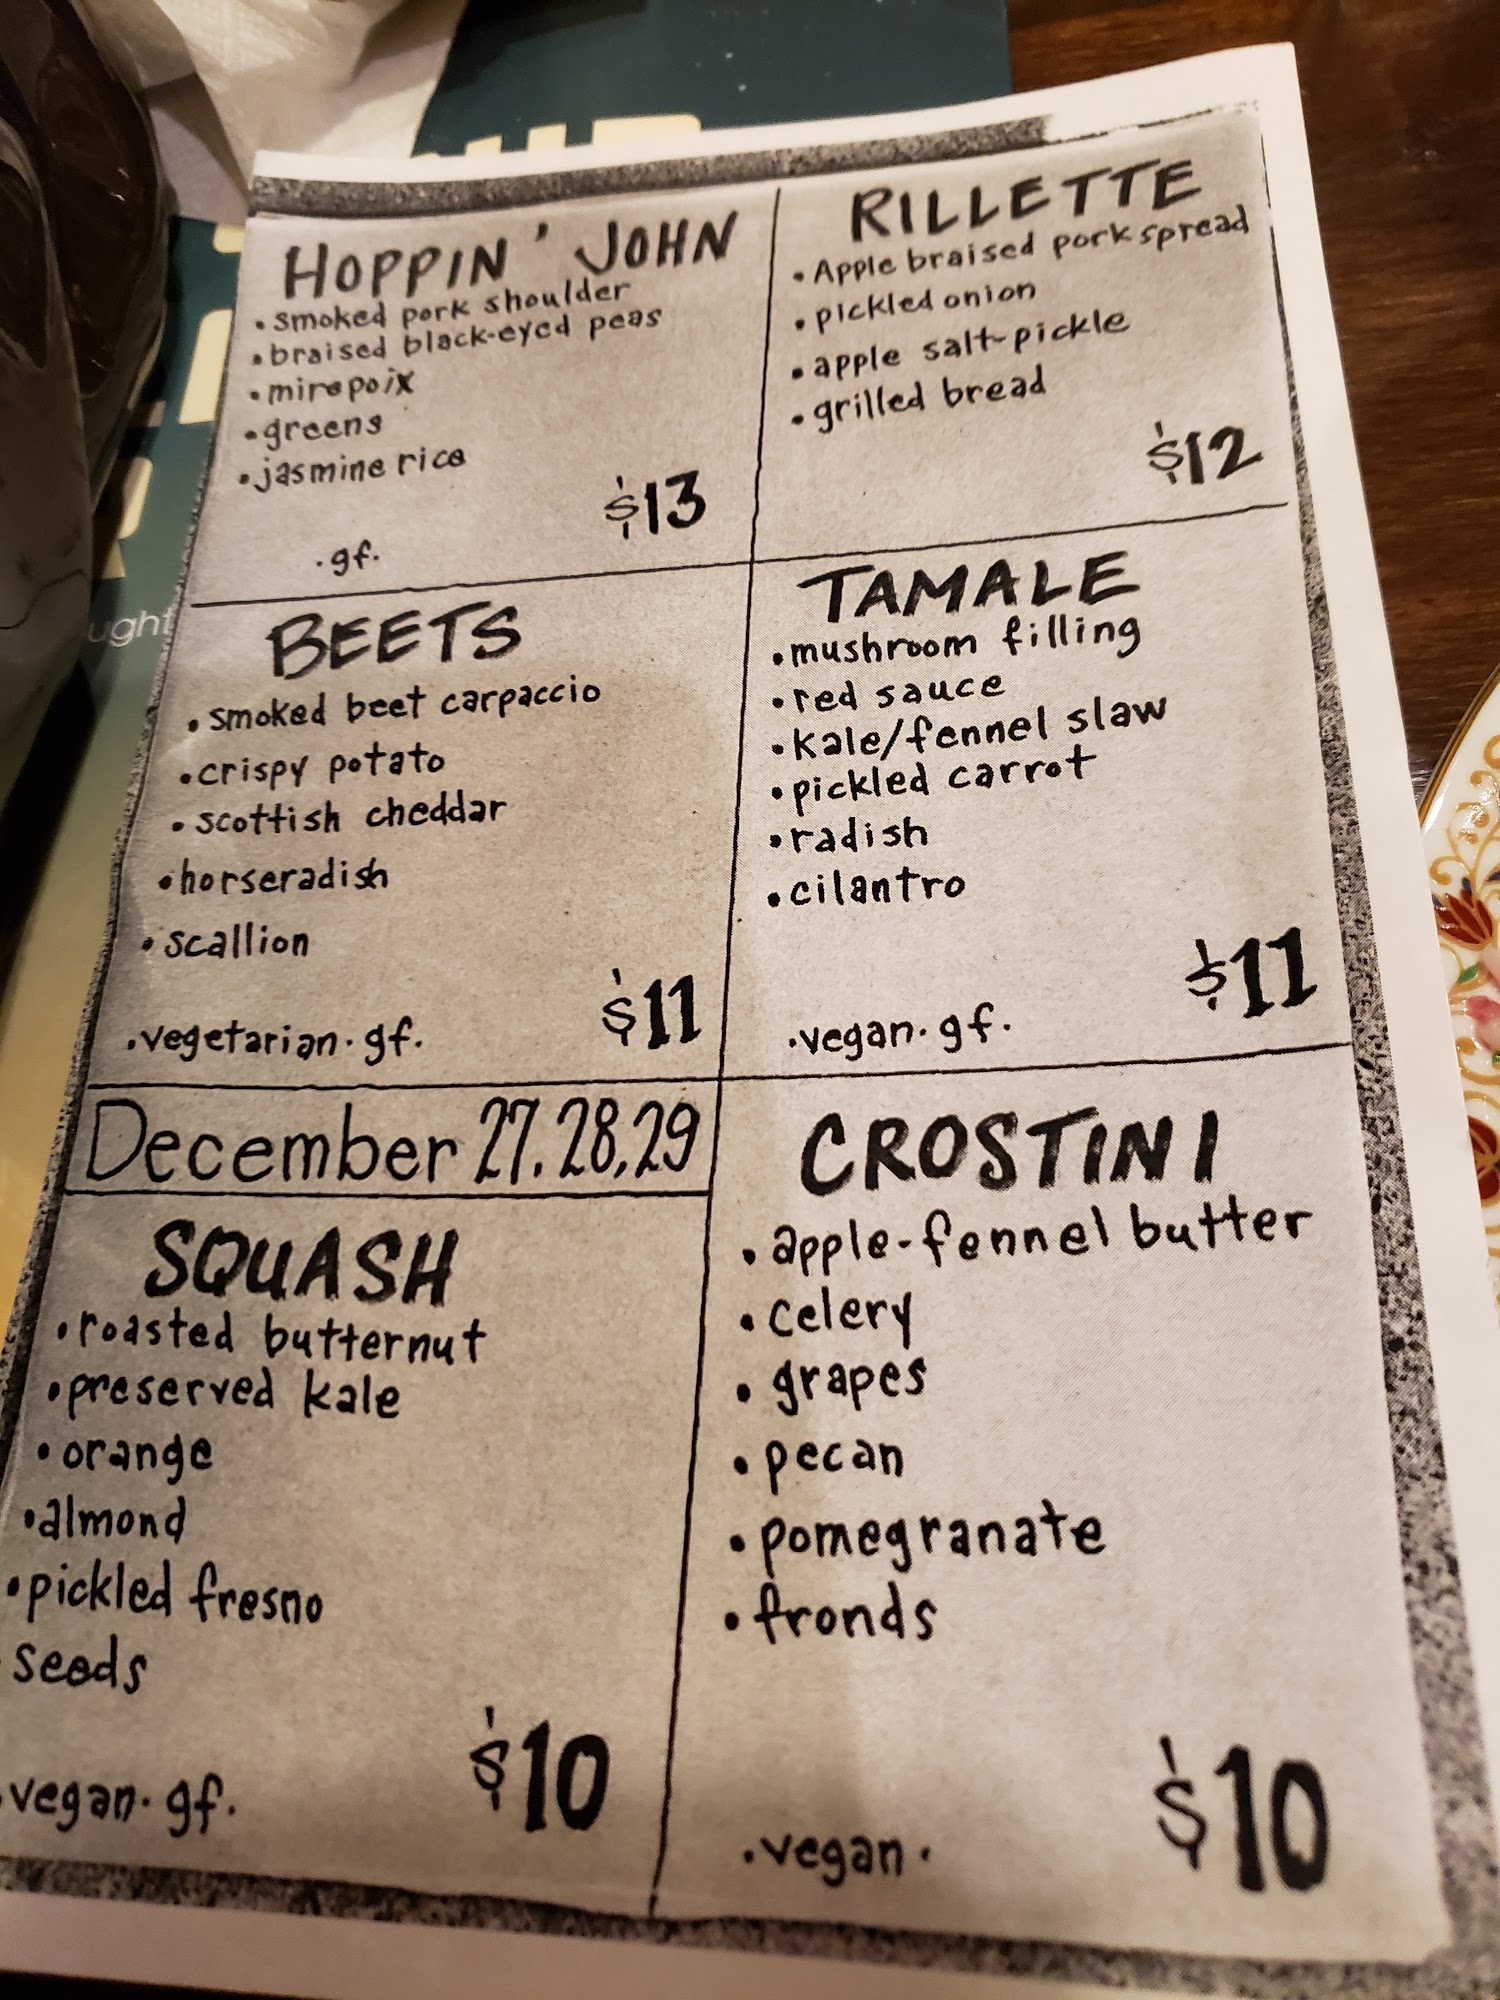 HOPPIN' JOHN
• smoked pork shoulder
• braised black-eyed peas
• mirepoix
• greens
• jasmine rice
$13
• gf •
RILLETTE
• Apple braised pork spread
• pickled onion
• apple salt-pickle
• grilled bread
$12
BEETS
• smoked beet carpaccio
• crispy potato
• scottish cheddar
• horseradish
• scallion
$11
• vegetarian • gf •
TAMALE
• mushroom filling
• red sauce
• kale/fennel slaw
• pickled carrot
• radish
• cilantro
$11
• vegan • gf •
December 27, 28, 29
SQUASH
• roasted butternut
• preserved kale
• orange
• almond
• pickled fresno
• seeds
$10
• vegan • gf •
CROSTINI
• apple-fennel butter
• celery
• grapes
• pecan
• pomegranate
• fronds
$10
• vegan •
ught